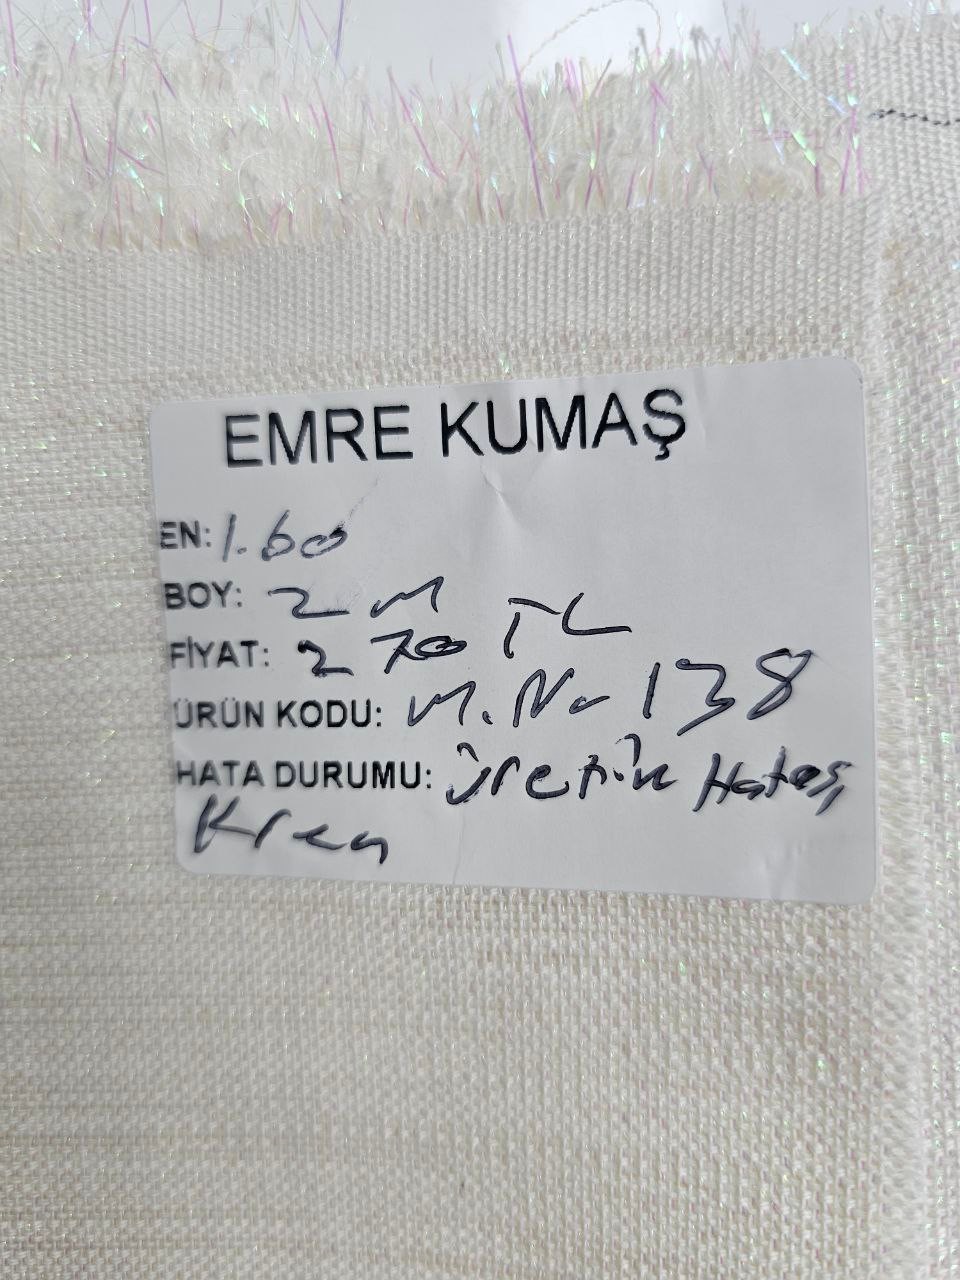 EMRE KUMAŞ
EN: 1.60
BOY: 2 M
FİYAT: 270 TL
ÜRÜN KODU: M.No 138
HATA DURUMU: üretim Hatası
Krem